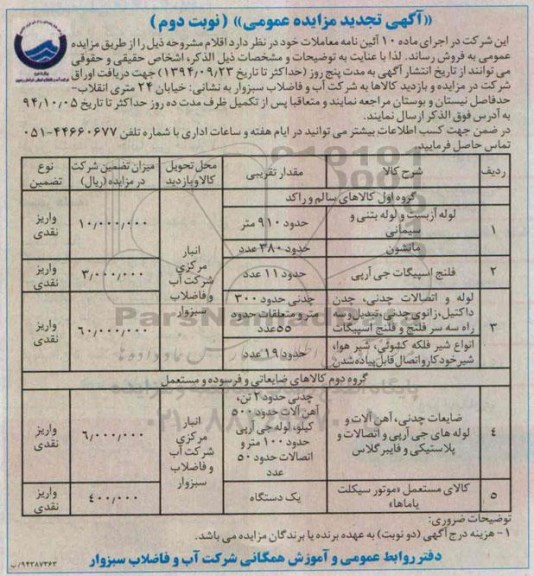 «آگهی تجدید مزایده عمومی» (نوبت دوم)
این شرکت در اجرای ماده ۱۰ آئین نامه معاملات خود در نظر دارد اقلام مشروحه ذیل را از طریق مزایده
عمومی به فروش رساند. لذا با عنایت به توضیحات و مشخصات ذیل الذکر، اشخاص حقیقی و حقوقی
می توانند از تاریخ انتشار آگهی به مدت پنج روز (حداکثر تا تاریخ ۱۳۹۴/۰۹/۲۳) جهت دریافت اوراق
شرکت در مزایده و بازدید کالاها به شرکت آب و فاضلاب سبزوار به نشانی: خیابان ۲۴ متری انقلاب-
حدفاصل نیستان و بوستان مراجعه نمایند و متعاقبا پس از تکمیل ظرف مدت ده روز حداکثر تا تاریخ ۹۴/۱۰/۰۵
به آدرس فوق الذکر ارسال نمایند.
در ضمن جهت کسب اطلاعات بیشتر می توانید در ایام هفته و ساعات اداری با شماره تلفن ۴۴۶۶۰۶۷۷-۰۵۱
تماس حاصل فرمایید.
ردیف شرح کالا مقدار تقریبی محل تحویل کالا و بازدید میزان تضمین شرکت در مزایده (ریال) نوع تضمین
گروه اول کالاهای سالم و راکد
۱ لوله آزبست و لوله بتنی و سیمانی حدود ۹۱۰ متر انبار مرکزی شرکت آب و فاضلاب سبزوار ۱۰/۰۰۰/۰۰۰ واریز نقدی
مانشون حدود ۳۸۰ عدد
۲ فلنچ اسپیگات جی آرپی حدود ۱۱ عدد ۳/۰۰۰/۰۰۰ واریز نقدی
۳ لوله و اتصالات چدنی، چدن داکتیل، زانوی چدنی، تبدیل و سه راه سه سر فلنچ و فلنج اسپیگات چدنی حدود ۳۰۰ متر و متعلقات حدود ۵۵ عدد ۶۰/۰۰۰/۰۰۰ واریز نقدی
انواع شیر فلکه کشوئی، شیر هوا، شیر خودکار و اتصال قابل پیاده شدن حدود ۱۹ عدد
گروه دوم کالاهای ضایعاتی و فرسوده و مستعمل
۴ ضایعات چدنی، آهن آلات و لوله های جی آرپی و اتصالات و پلاستیکی و فایبرگلاس چدنی حدود ۲ تن، آهن آلات حدود ۵۰۰ کیلو، لوله جی آرپی حدود ۱۰۰ متر و اتصالات حدود ۵۰ عدد انبار مرکزی شرکت آب و فاضلاب سبزوار ۶/۰۰۰/۰۰۰ واریز نقدی
۵ کالای مستعمل «موتور سیکلت یاماها» یک دستگاه ۴۰۰/۰۰۰ واریز نقدی
توضیحات ضروری:
۱- هزینه درج آگهی (دو نوبت) به عهده برنده یا برندگان مزایده می باشد.
دفتر روابط عمومی و آموزش همگانی شرکت آب و فاضلاب سبزوار
۹۴۳۸۷۳۶۳/ب